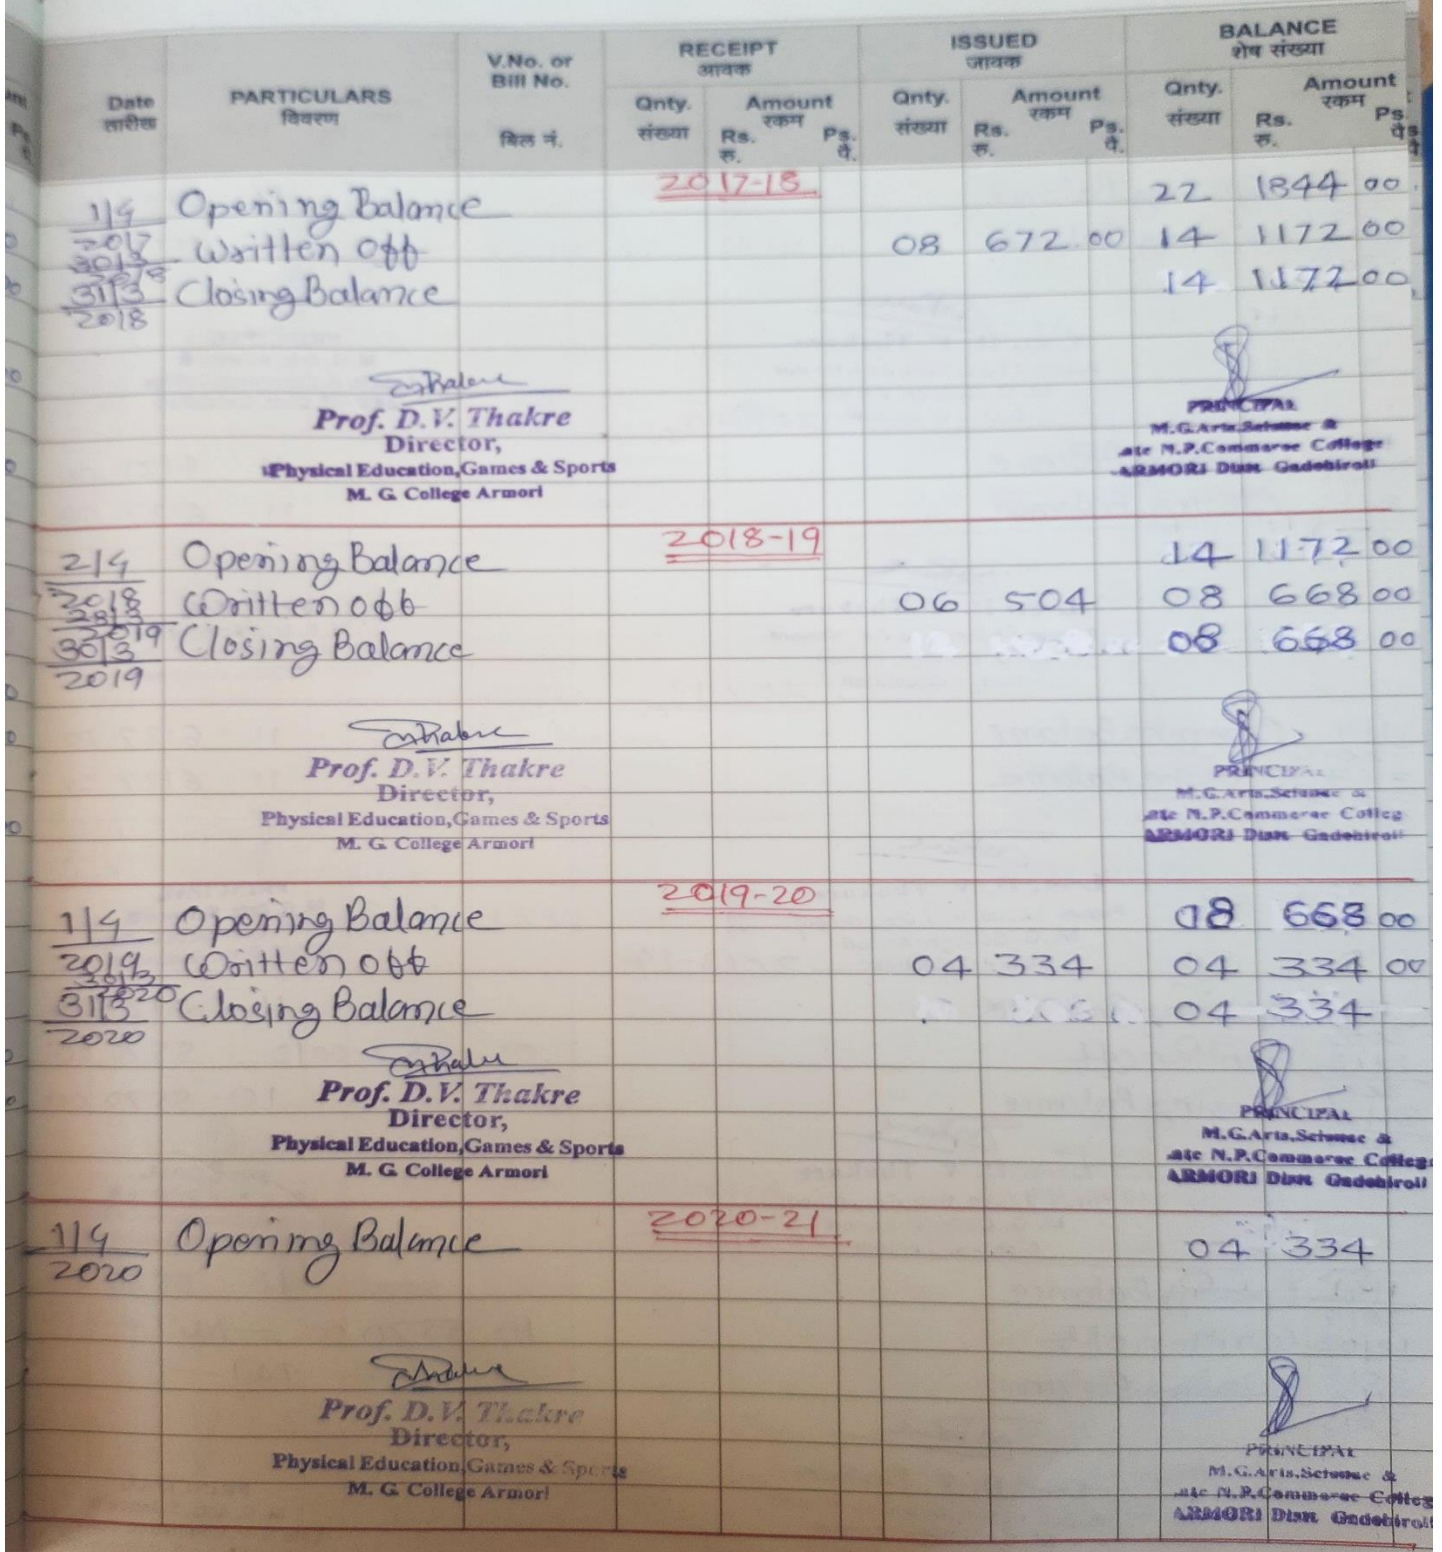 RECEIPT ISSUED BALANCE
आवक जावक शेष संख्या
Date PARTICULARS V.No. or Bill No. Qnty. Amount Qnty. Amount Qnty. Amount
तारीख विवरण बिल नं. संख्या रकम संख्या रकम संख्या रकम
Rs. Ps. Rs. Ps. Rs. Ps.
रु. पै. रु. पै. रु. पै.
2017-18
1/4 Opening Balance 22 1844 00
2017
30/3 Written off 08 672 00 14 1172 00
2018
31/3 Closing Balance 14 1172 00
2018
Prof. D.V. Thakre
Director,
Physical Education,Games & Sports
M. G. College Armori
PRINCIPAL
M.G.Arts,Science &
ate N.P.Commerce College
ARMORI Distt Gadchiroli
2018-19
2/4 Opening Balance 14 1172 00
2018
28/3 Written off 06 504 08 668 00
2019
30/3 Closing Balance 08 668 00
2019
Prof. D.V. Thakre
Director,
Physical Education,Games & Sports
M. G. College Armori
PRINCIPAL
M.G.Arts,Science &
ate N.P.Commerce Colleg
ARMORI Distt Gadchiroli
2019-20
1/4 Opening Balance 08 668 00
2019
30/3 Written off 04 334 04 334 00
2020
31/3 Closing Balance 04 334
2020
Prof. D.V. Thakre
Director,
Physical Education,Games & Sports
M. G. College Armori
PRINCIPAL
M.G.Arts,Science &
ate N.P.Commerce College
ARMORI Distt Gadchiroli
2020-21
1/4 Opening Balance 04 334
2020
Prof. D.V. Thakre
Director,
Physical Education,Games & Sports
M. G. College Armori
PRINCIPAL
M.G.Arts,Science &
ate N.P.Commerce Colleg
ARMORI Distt Gadchiroli